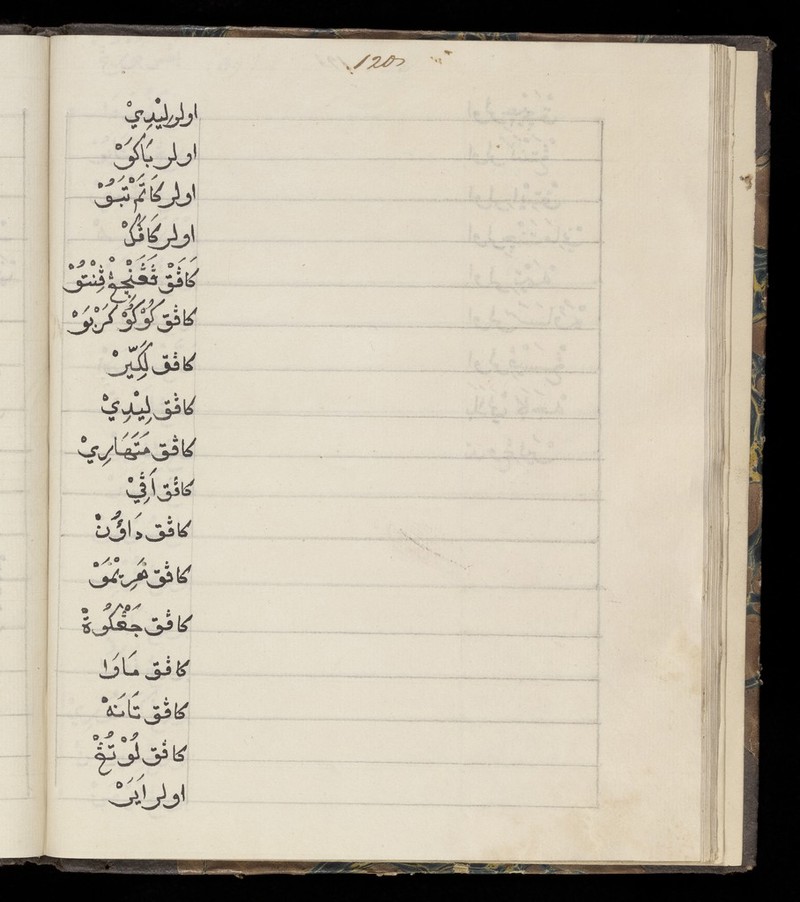 120
اولر لِيْدِيْ
اولر بَاكَوْ
اولر كَاتَمْ تَبَوْ
اولر كَاڤَكْ
كَاڤَقْ ڤَڠَنْجِڠْ ڤِنْتَوْ
كاڤق كُوْكُوْ كَرْبَوْ
كاڤق لَكِيّرْ
كاڤق لِيْدِيْ
كاڤق مَتَهَارِيْ
كاڤق اَڤِيْ
كاڤق دَاؤُنْ
كاڤق هَرِيْمَوْ
كاڤق جَڠْكُوةْ
كاڤق مَاوَا
كاڤق تَانَهْ
كاڤق لُوْتُڠْ
اولر اَيَرْ